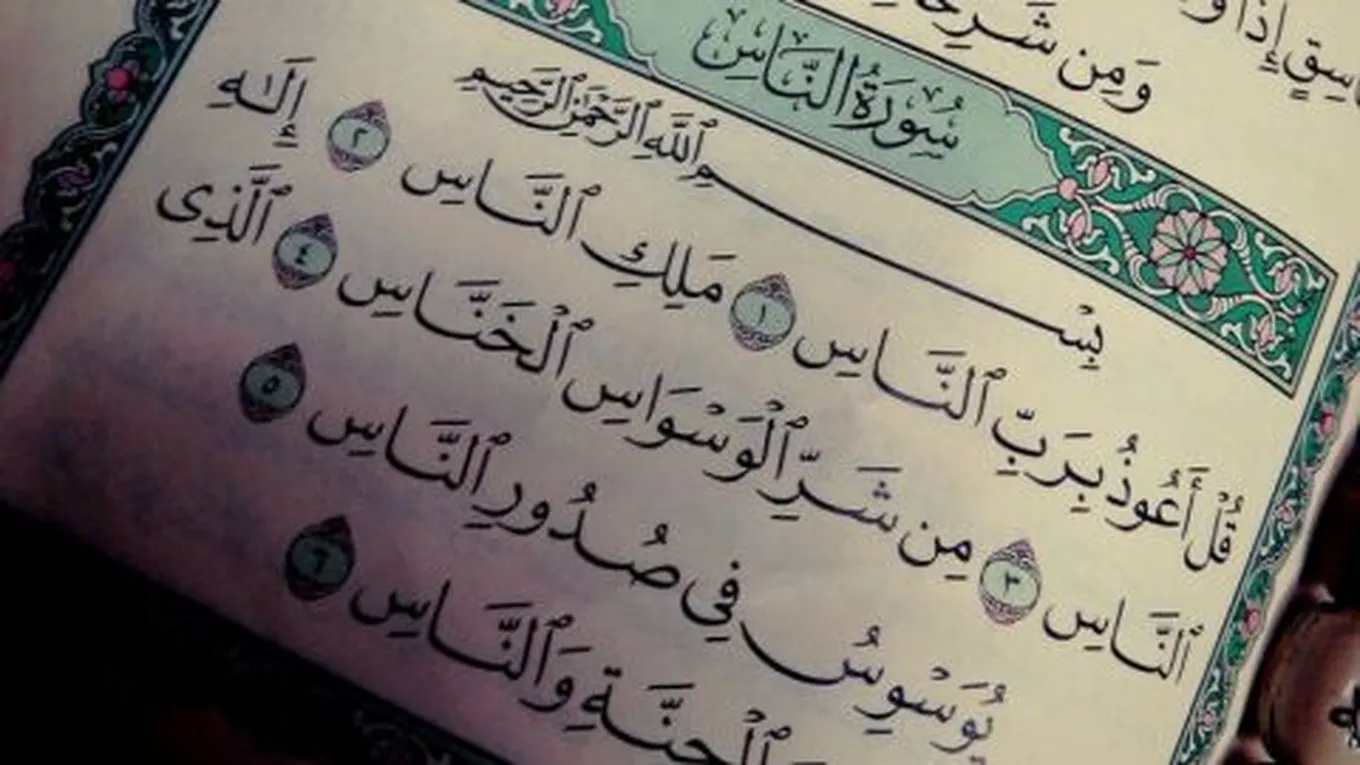 اسِقٍ إِذَا وَ
وَمِن شَرِّ حَا
سُورَةُ النَّاسِ
بِسْمِ ٱللَّهِ ٱلرَّحْمَٰنِ ٱلرَّحِيمِ
قُلْ أَعُوذُ بِرَبِّ ٱلنَّاسِ ١ مَلِكِ ٱلنَّاسِ ٢ إِلَٰهِ
ٱلنَّاسِ ٣ مِن شَرِّ ٱلْوَسْوَاسِ ٱلْخَنَّاسِ ٤ ٱلَّذِى
يُوَسْوِسُ فِى صُدُورِ ٱلنَّاسِ ٥
ٱلْجِنَّةِ وَٱلنَّاسِ ٦